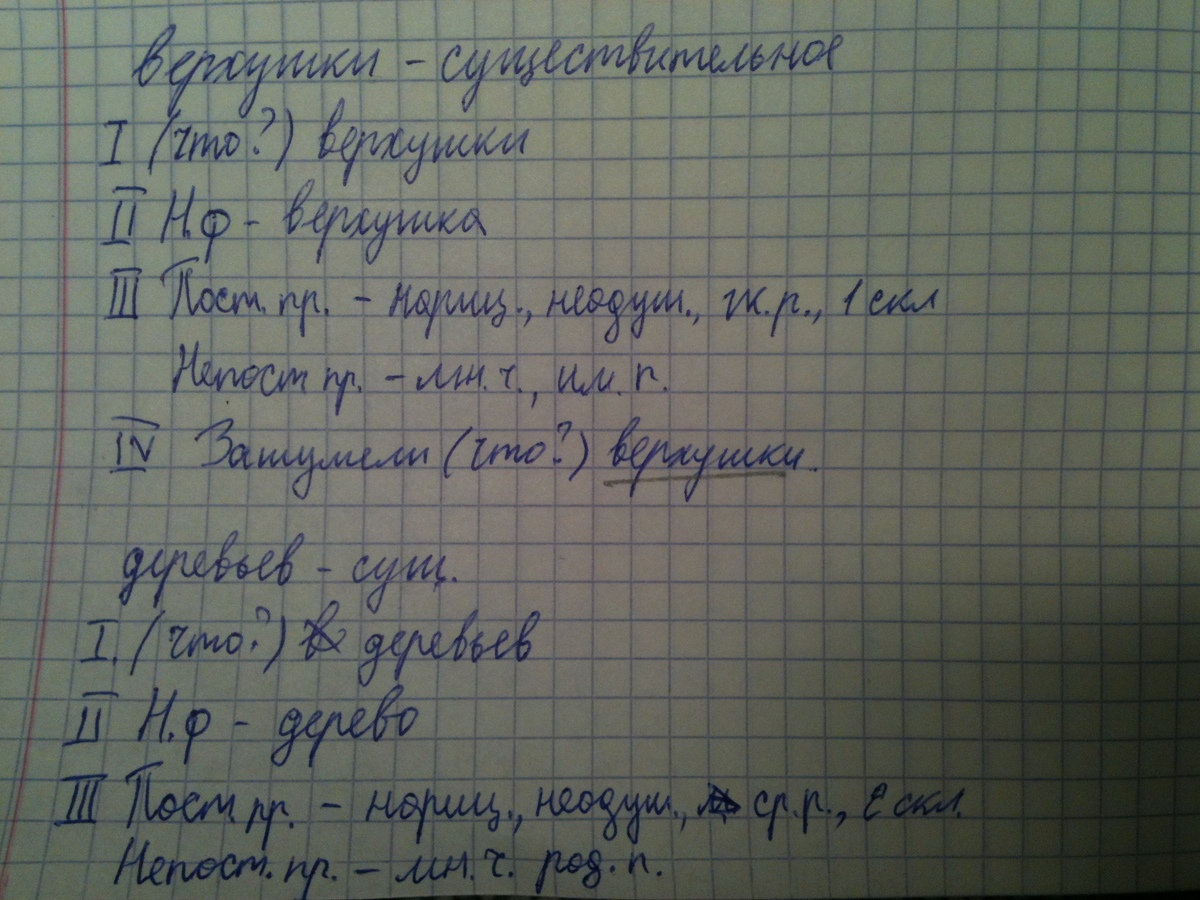 верхушки - существительное
I (что?) верхушки
II Н.ф - верхушка
III Пост. пр. - нариц., неодуш., ж.р., 1 скл
Непост пр. - мн.ч., им. п.
IV Зашумели (что?) верхушки.
деревьев - сущ.
I. (что?) деревьев
II Н.ф - дерево
III Пост. пр. - нариц., неодуш., ср.р., 2 скл.
Непост. пр. - мн.ч. род. п.